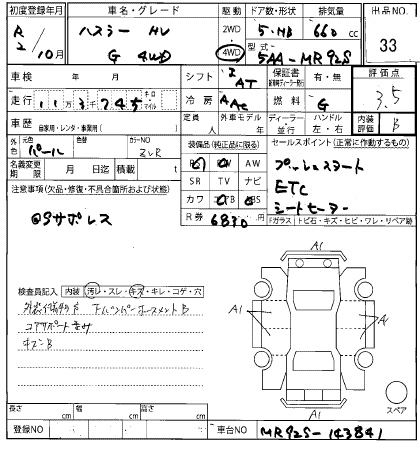 初度登録年月 車名・グレード 駆動 ドア数・形状 排気量 出品NO.
R2/10月 ハスラー HV 2WD 5・HB 660 cc 33
G 4WD 4WD 型式 5AA-MR92S
車検 年 月 シフト I AT 保証書 有・無 評価点
走行 11万3千245 キロ マイル 冷房 AAC 燃料 G 3.5
車歴 自家用・レンタ・事業用( ) 定員 人 外車モデル ディーラー 並行 ハンドル 左・右 内装評価 B
色 元色 パール 色替 カラーNO ZVR 装備品(純正品に限る) セールスポイント(正常に作動するもの)
名義変更期限 月 日迄 積載量 t AW プッシュスタート
注意事項(欠品・修復・不具合箇所および状態) SR TV ナビ ETC
◎Sサポレス カワ ABS シートヒーター
R券 6830 Fガラス トビ石・キズ・ヒビ・ワレ・リペア跡
検査員記入 内装 汚レ・スレ・キズ・キレ・コゲ・穴
コアサポートキズ
A1
A1
A1
A1
スペア
長さ cm 幅 cm 高さ cm
登録NO 車台NO MR92S-143841